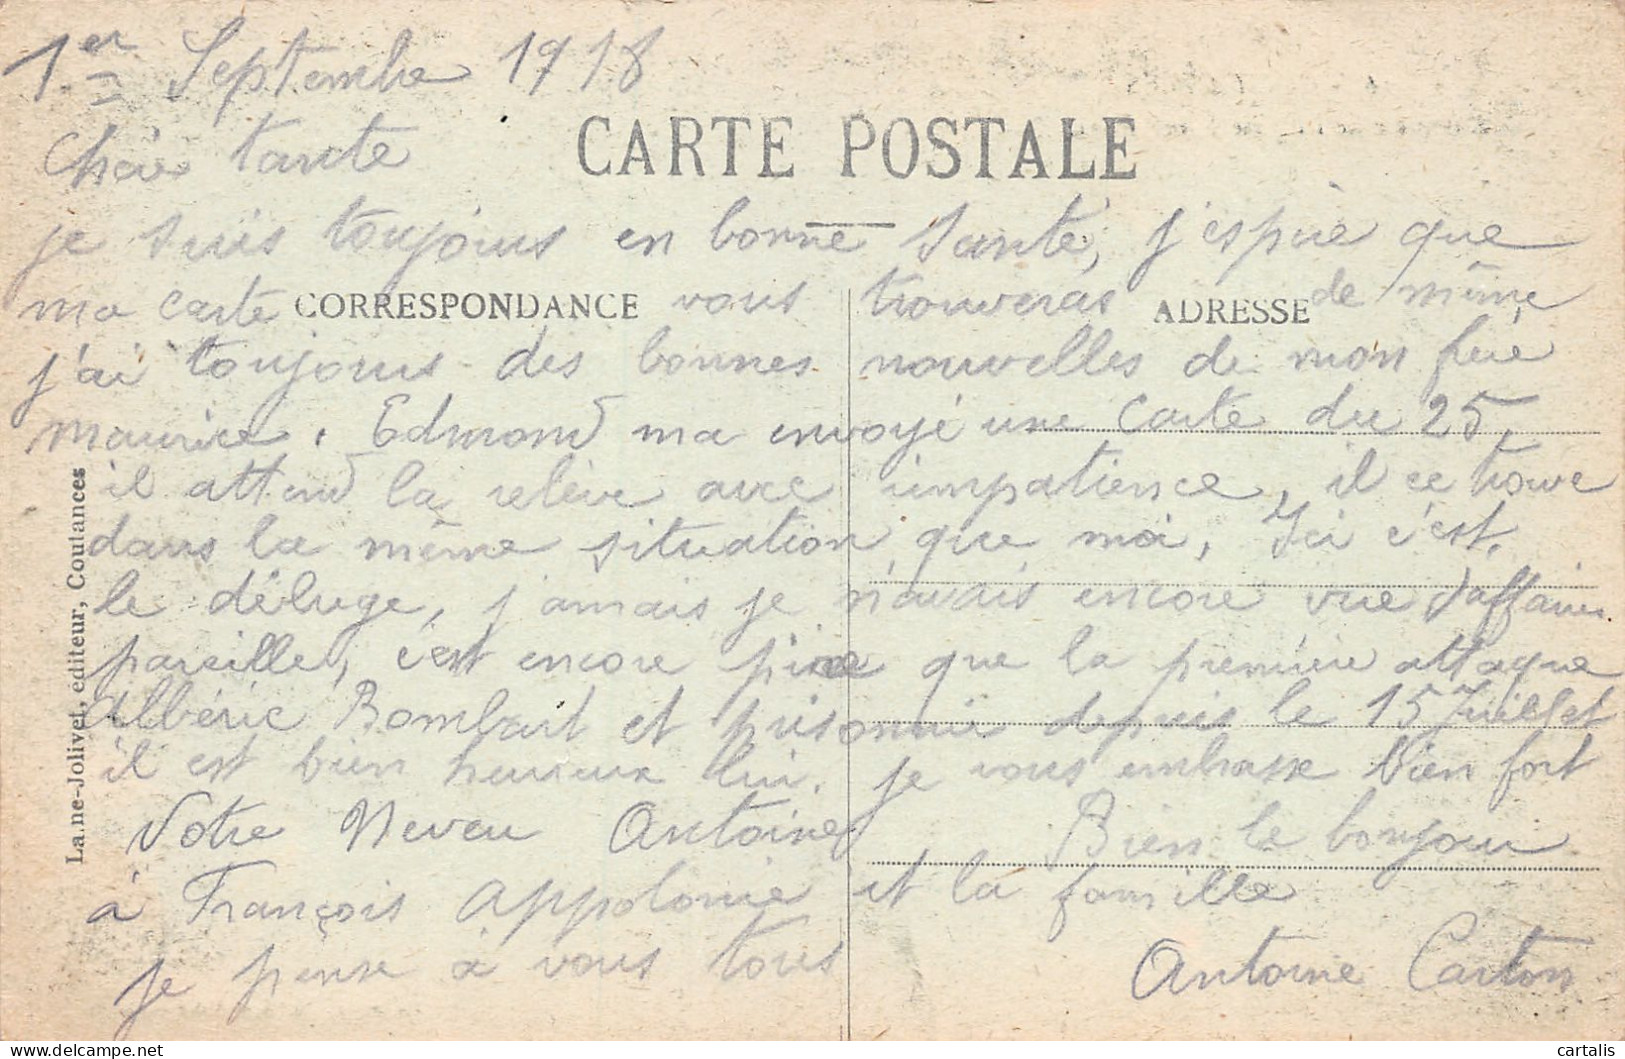 1er Septembre 1918
CARTE POSTALE
Chère tante
je suis toujours en bonne santé, j'espère que
ma carte CORRESPONDANCE vous trouveras ADRESSE de même
j'ai toujours des bonnes nouvelles de mon frère
maurice. Edmond ma envoyé une carte du 25,
il attend la relève avec impatience, il ce trouve
dans la même situation que moi, Ici c'est
le déluge, jamais je n'avais encore vue d'affaires
pareille, c'est encore pire que la première attaque
Albéric Bombart et prisonnié depuis le 15 Juillet
il est bien heureux lui. je vous embrasse bien fort
Votre Neveu Antoine Bien le bonjour
à François Appolonie et la famille
je pense à vous tous Antoine Carton
La.ne-Jolivet, éditeur, Coutances
cartalis